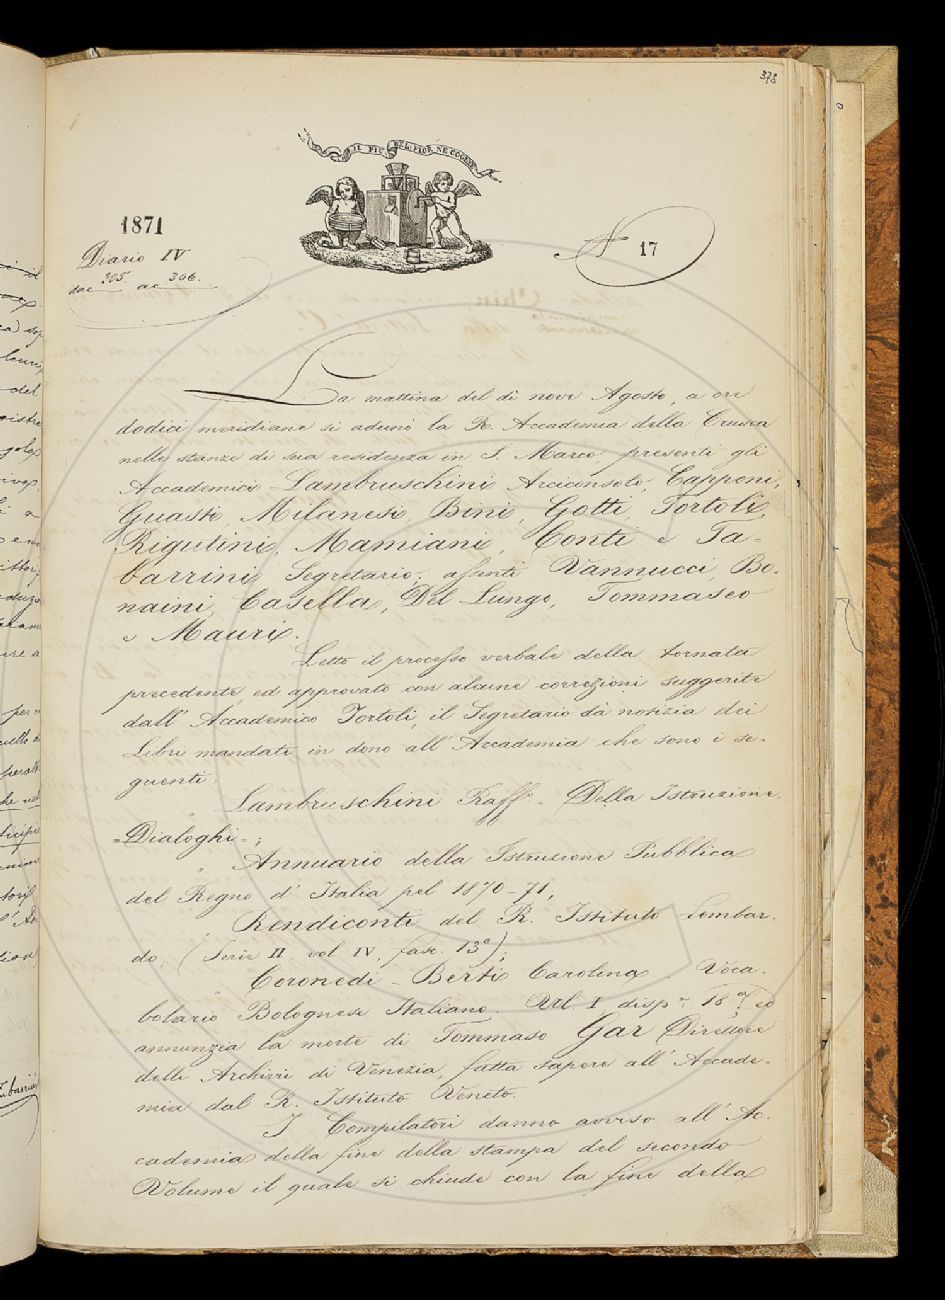 378
IL PIÙ BEL FIOR NE COGLIE
1871
Diario IV
dac 305. ac 306.
N 17
La mattina del dì nove Agosto, a ore
dodici meridiane si adunò la R. Accademia della Crusca
nelle stanze di sua residenza in S. Marco presenti gli
Accademici Lambruschini Arciconsolo, Capponi,
Guasti, Milanesi, Bini, Gotti, Tortoli,
Rigutini, Mamiani, Conti e Ta-
barrini Segretario; assenti Vannucci, Bo-
naini, Casella, Del Lungo, Tommaseo
e Mauri.
Letto il processo verbale della tornata
precedente, ed approvato con alcune correzioni suggerite
dall' Accademico Tortoli, il Segretario dà notizia dei
Libri mandati in dono all' Accademia che sono i se-
guenti:
Lambruschini Raff. - Della Istruzione.
= Dialoghi =;
" Annuario della Istruzione Pubblica
del Regno d' Italia pel 1870-71,
" Rendiconti del R. Istituto Lombar-
do, (Serie II vol IV, fasc. 13°);
" Coronedi - Berti Carolina - Voca-
bolario Bolognese Italiano. Vol. I disp. 18ª. ed
annunzia la morte di Tommaso Gar Direttore
delli Archivii di Venezia, fatta sapere all' Accade-
mia dal R. Istituto Veneto.
I Compilatori danno avviso all' Ac-
cademia della fine della stampa del secondo
Volume il quale si chiude con la fine della